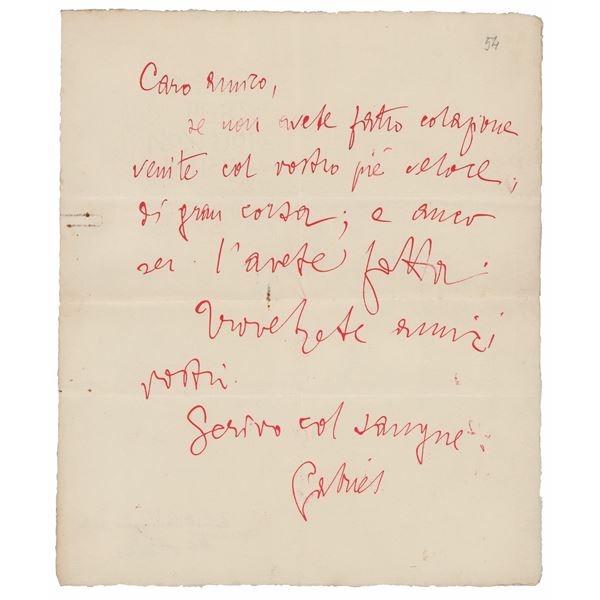 54
Caro amico,
se non avete fatto colazione
venite col vostro piè veloce,
di gran corsa; e anco
se l'avete fatta.
Troverete amici
vostri.
Scrivo col sangue.
Gabriel